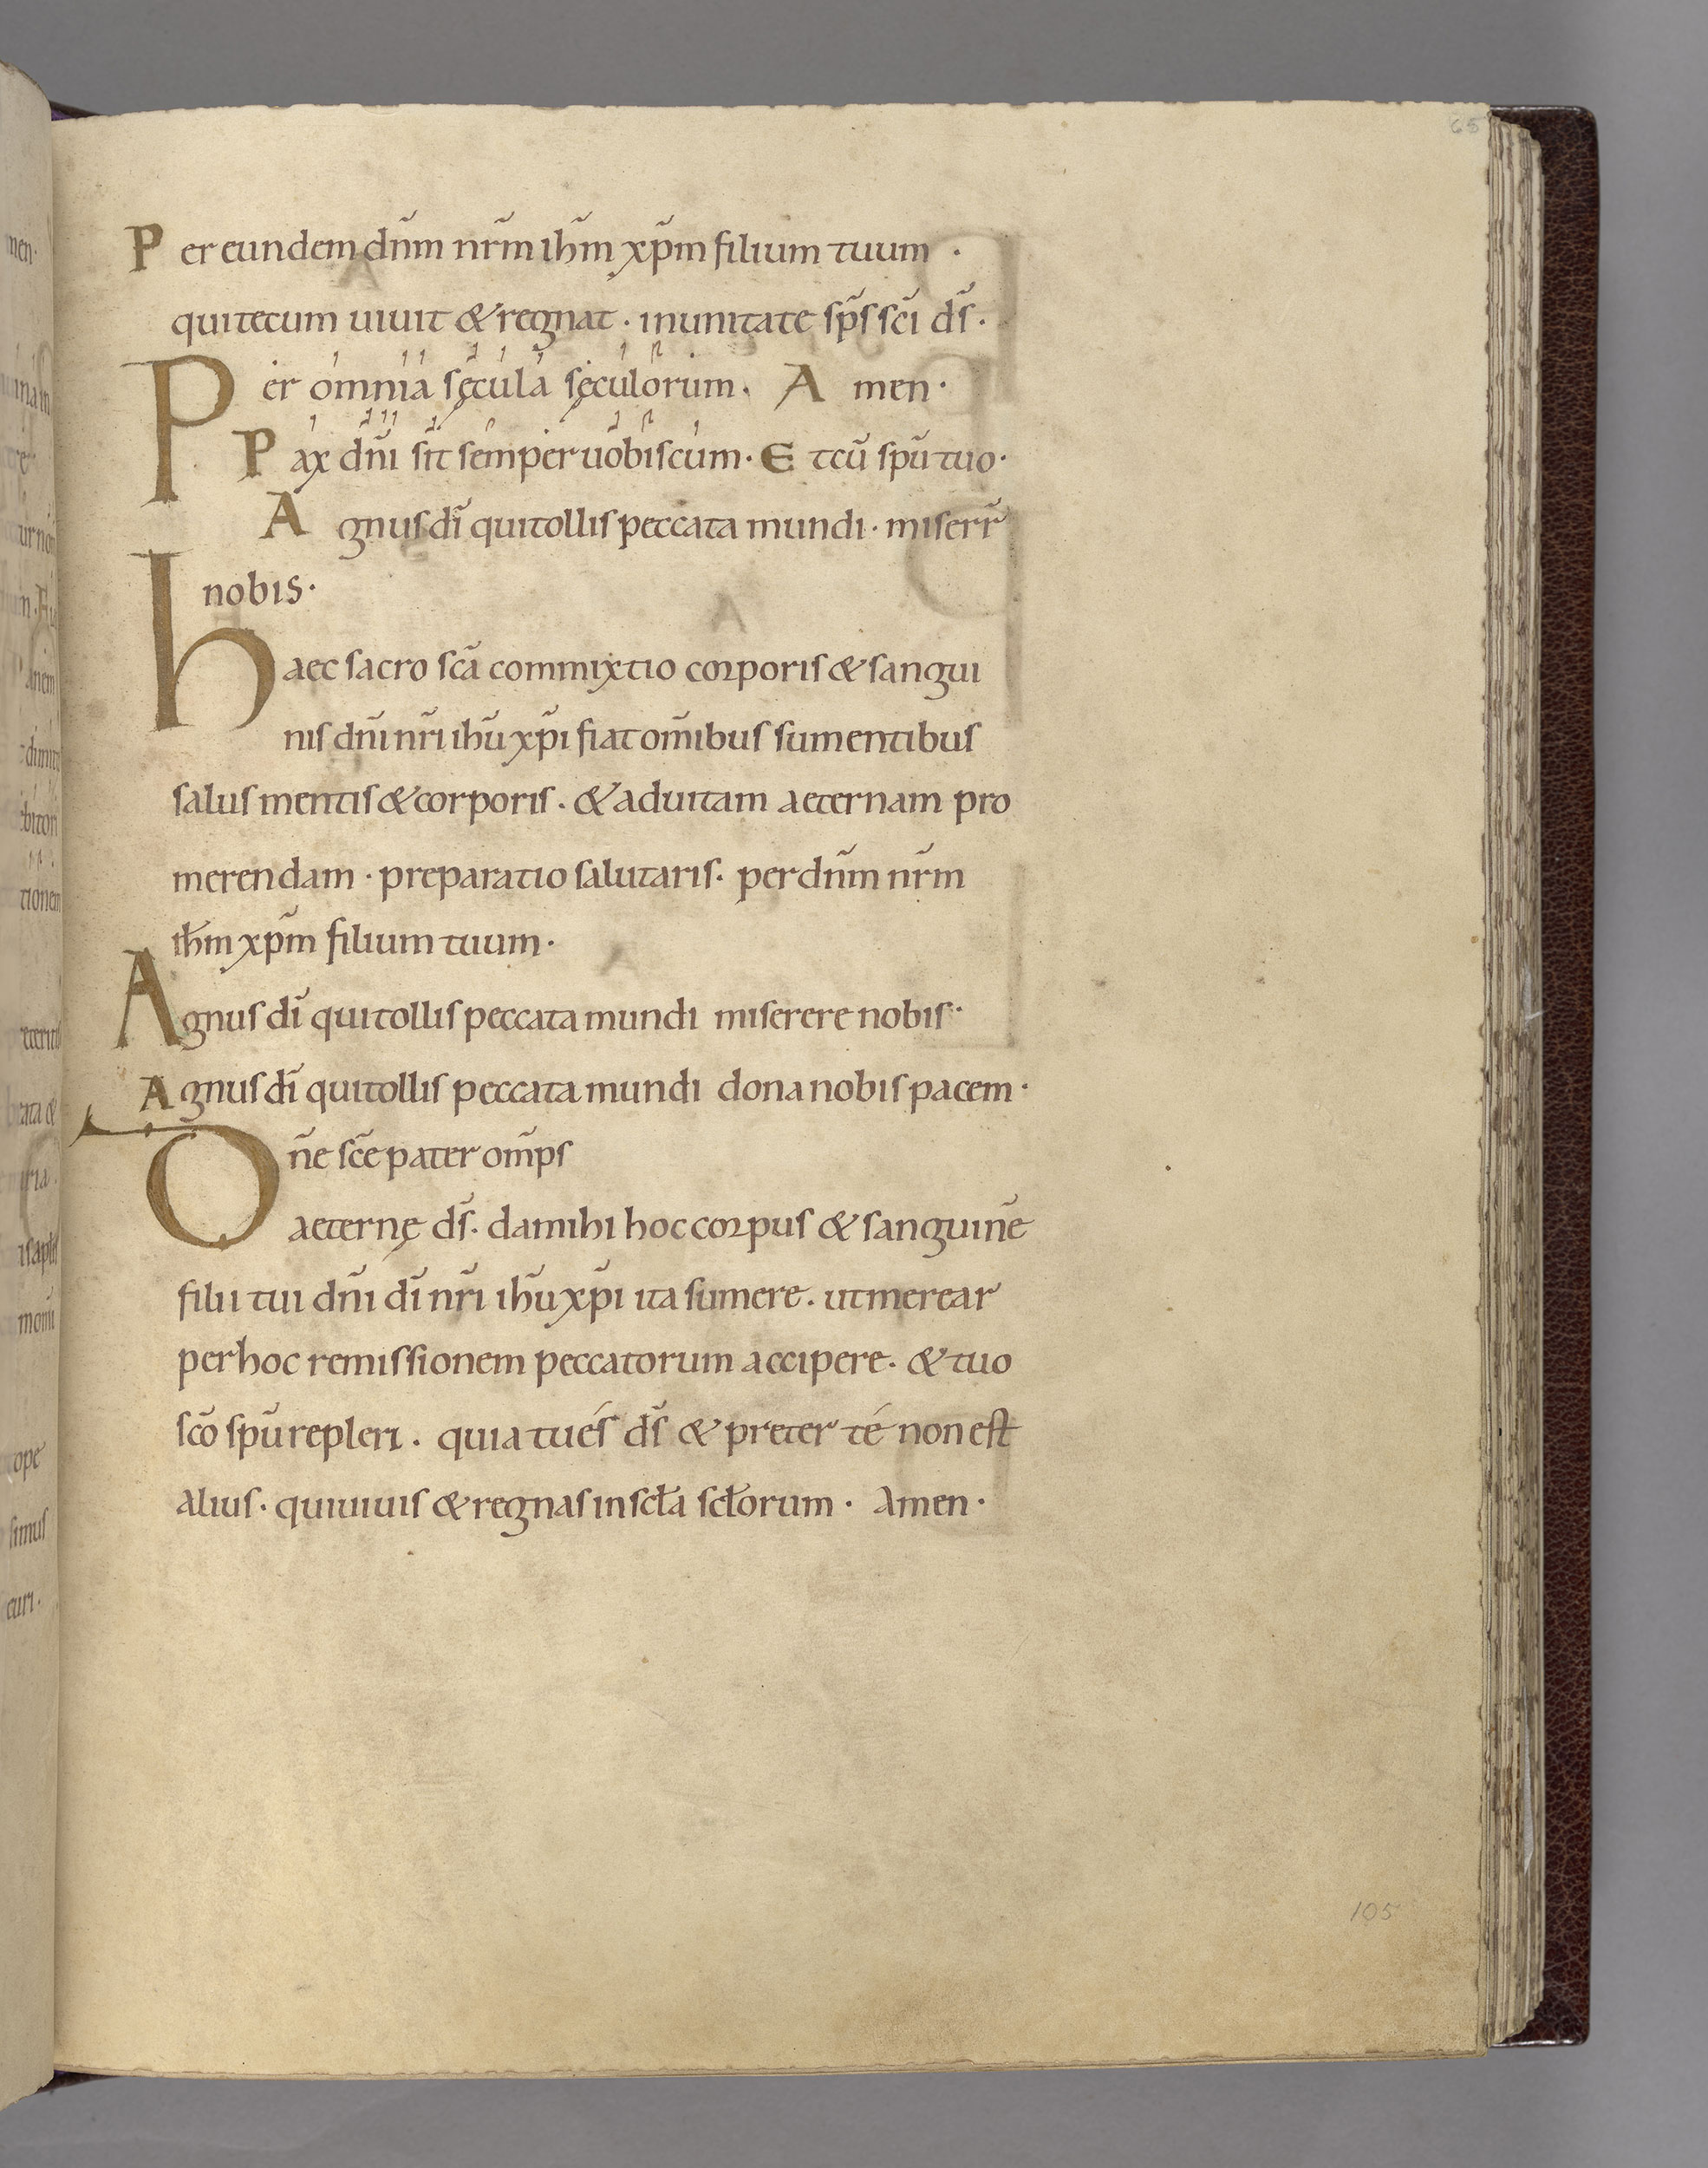 65
Per eundem dn̄m nr̄m ih̄m xp̄m filium tuum ·
qui tecum uiuit & regnat · in unitate sp̄s sc̄i ds̄ ·
Per omnia sęcula sęculorum . Amen ·
Pax dn̄i sit semper uobiscum · Et cū spū tuo ·
Agnus dī qui tollis peccata mundi · miserr̄
nobis ·
haec sacro sc̄a commixtio corporis & sangui
nis dn̄i nr̄i ihū xp̄i fiat om̄ibus sumentibus
salus mentis & corporis . & ad uitam aeternam pro
merendam · preparatio salutaris · per dn̄m nr̄m
ih̄m xp̄m filium tuum ·
Agnus dī qui tollis peccata mundi miserere nobis ·
Agnus dī qui tollis peccata mundi dona nobis pacem ·
Dn̄e sc̄e pater om̄ps
aeternę ds̄ . da mihi hoc corpus & sanguinē
filii tui dn̄i dī nr̄i ihū xp̄i ita sumere . ut merear
per hoc remissionem peccatorum accipere . & tuo
sc̄o spū repleri . quia tu és ds̄ & preter té non est
alius . qui uiuis & regnas in sc̄la sc̄lorum · Amen ·
105